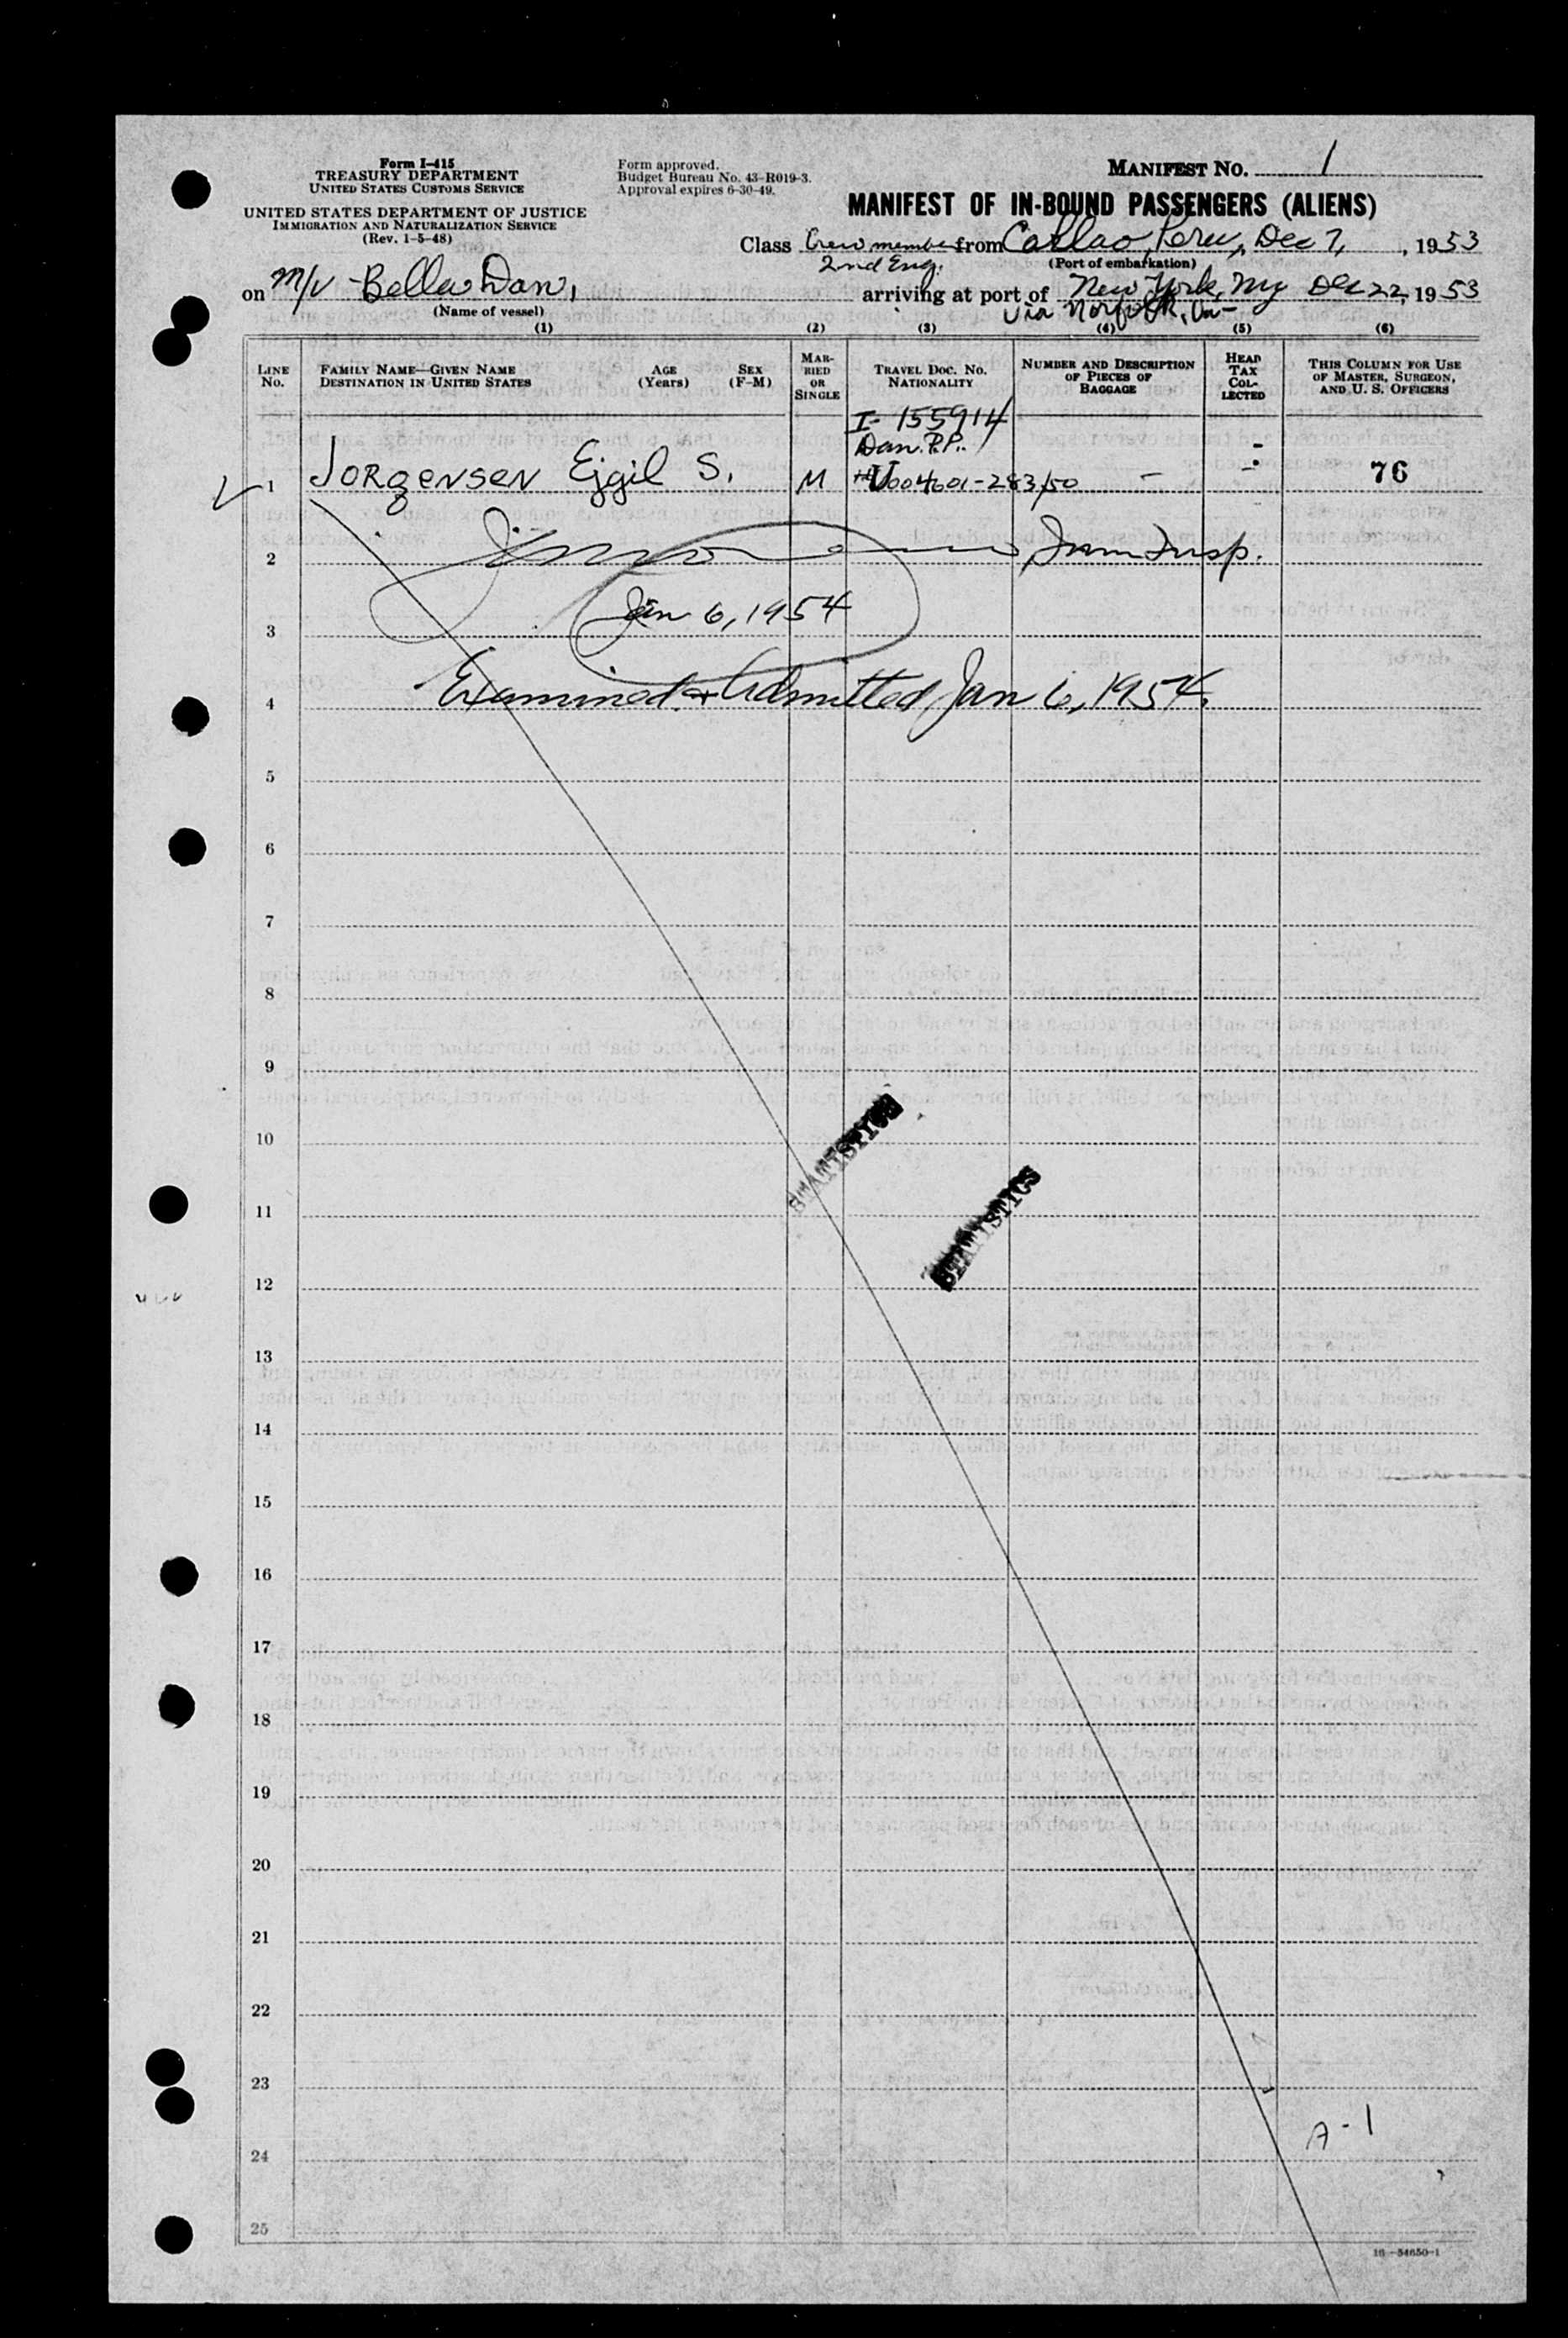 Form I-415
TREASURY DEPARTMENT
UNITED STATES CUSTOMS SERVICE
UNITED STATES DEPARTMENT OF JUSTICE
IMMIGRATION AND NATURALIZATION SERVICE
(Rev. 1-5-48)
Form approved.
Budget Bureau No. 43-R019-3.
Approval expires 6-30-49.
MANIFEST No. 1
MANIFEST OF IN-BOUND PASSENGERS (ALIENS)
Class Crew member from Callao, Peru, Dec 7, , 1953
2nd Eng.
(Port of embarkation)
on M/V Bella Dan, arriving at port of New York, NY Dec 22, 1953
(Name of vessel)
via Norfolk, Va-
(1) (2) (3) (4) (5) (6)
LINE No. FAMILY NAME—GIVEN NAME DESTINATION IN UNITED STATES AGE (Years) SEX (F-M) MARRIED OR SINGLE TRAVEL DOC. NO. NATIONALITY NUMBER AND DESCRIPTION OF PIECES OF BAGGAGE HEAD TAX COLLECTED THIS COLUMN FOR USE OF MASTER, SURGEON, AND U. S. OFFICERS
I- 155914
Dan. P.P.
1 Jorgensen Ejgil S. M 004601-283/50 — 76
2 Imm Insp.
Jan 6, 1954
3
4 Examined & Admitted Jan 6, 1954.
5
6
7
8
9
10
STATISTICS
11
STATISTICS
12
13
14
15
16
17
18
19
20
21
22
23
A-1
24
25
16—54650-1